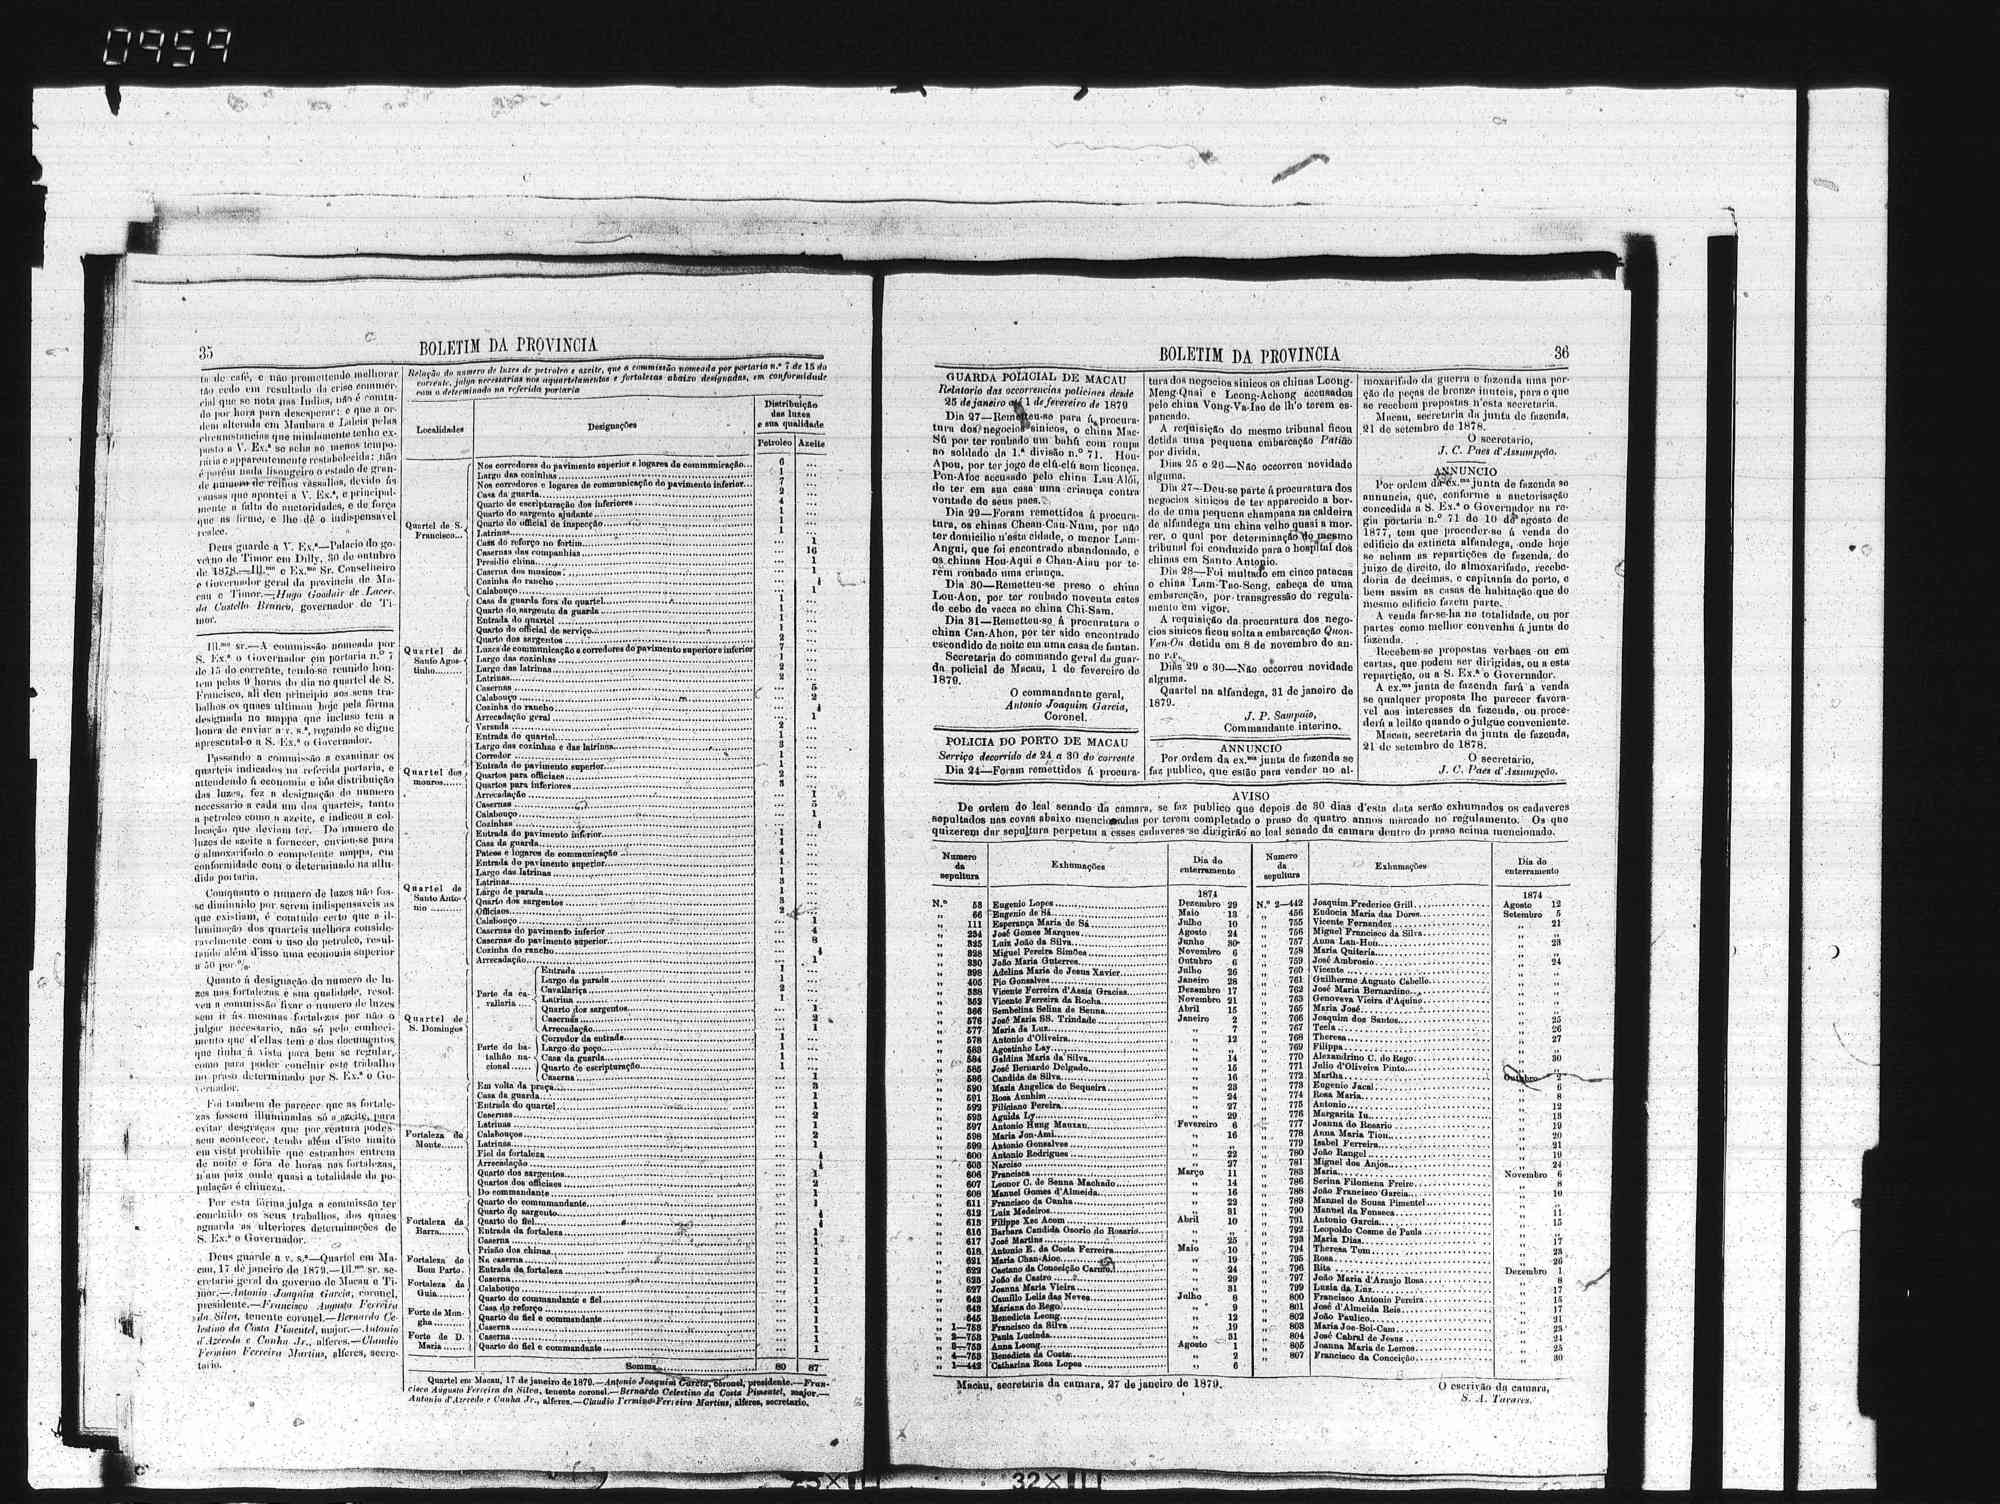 0959
35
BOLETIM DA PROVINCIA
to de café, e não promettendo melhorar
tão cedo em resultado da crise commer-
cial que se nota nas Indias, não é comtu-
do por hora para desesperar: e que a or-
dem alterada em Manbara e Laleia pelas
circumstancias que miudamente tenho ex-
posto a V. Ex.ª se acha ao menos tempo-
raria e apparentemente restabelecida: não
é porém nada lisongeiro o estado de gran-
de numero de reinos vassallos, devido ás
causas que apontei a V. Ex.ª, e principal-
mente a falta de auctoridades, e de força
que as firme, e lhe dê o indispensavel
realce.
Deus guarde a V. Ex.ª—Palacio do go-
verno de Timor em Dilly, 30 de outubro
de 1878.—Ill.mo e Ex.mo Sr. Conselheiro
e Governador geral da provincia de Ma-
cau e Timor.—Hugo Goodair de Lacer-
da Castello Branco, governador de Ti-
mor.
Ill.mo sr.—A commissão nomeada por
S. Ex.ª o Governador em portaria n.º 7
de 15 do corrente, tendo-se reunido hon-
tem pelas 9 horas do dia no quartel de S.
Francisco, ali deu principio aos seus tra-
balhos os quaes ultimou hoje pela fórma
designada no mappa que incluso tem a
honra de enviar a v. s.ª, rogando se digne
apresental-o a S. Ex.ª o Governador.
Passando a commissão a examinar os
quarteis indicados na referida portaria, e
attendendo á economia e bôa distribuição
das luzes, fez a designação do numero
necessario a cada um dos quarteis, tanto
a petroleo como a azeite, e indicou a col-
locação que deviam ter. Do numero de
luzes de azeite a fornecer, enviou-se para
o almoxarifado o competente mappa, em
conformidade com o determinado na allu-
dida portaria.
Comquanto o numero de luzes não fos-
se diminuido por serem indispensaveis as
que existiam, é comtudo certo que a il-
luminação dos quarteis melhora conside-
ravelmente com o uso do petroleo, resul-
tando além d'isso uma economia superior
a 50 por %.
Quanto á designação do numero de lu-
zes nas fortalezas e sua qualidade, resol-
veu a commissão fixar o numero de luzes
sem ir ás mesmas fortalezas por não o
julgar necessario, não só pelo conheci-
mento que d'ellas tem e dos documentos
que tinha á vista para bem se regular,
como para poder concluir este trabalho
no praso determinado por S. Ex.ª o Go-
vernador.
Foi tambem de parecer que as fortale-
zas fossem illuminadas só a azeite, para
evitar desgraças que por ventura podes-
sem acontecer, tendo além d'isto muito
em vista prohibir que estranhos entrem
de noite e fóra de horas nas fortalezas,
n'um paiz onde quasi a totalidade da po-
pulação é chineza.
Por esta fórma julga a commissão ter
concluido os seus trabalhos, dos quaes
aguarda as ulteriores determinações de
S. Ex.ª o Governador.
Deus guarde a v. s.ª—Quartel em Ma-
cau, 17 de janeiro de 1879.—Ill.mo sr. se-
cretario geral do governo de Macau e Ti-
mor.—Antonio Joaquim Garcia, coronel,
presidente.—Francisco Augusto Ferreira
da Silva, tenente coronel.—Bernardo Ce-
lestino da Costa Pimentel, major.—Antonio
d'Azevedo e Cunha Jr., alferes.—Claudio
Fermino Ferreira Martins, alferes, secre-
tario.
Relação do numero de luzes de petroleo e azeite, que a commissão nomeada por portaria n.º 7 de 15 do
corrente, julga necessarias nos aquartelamentos e fortalezas abaixo designadas, em conformidade
com o determinado na referida portaria
Localidades
Designações
Distribuição
das luzes
e sua qualidade
Petroleo Azeite
Quartel de S.
Francisco...
Nos corredores do pavimento superior e logares de communicação... 6 ...
Largo das cozinhas 1 ...
Nos corredores e logares de communicação do pavimento inferior... 7 ...
Casa da guarda 2 ...
Quarto de escripturação dos inferiores 4 ...
Quarto do sargento ajudante 1 ...
Quarto do official de inspecção 1 ...
Latrinas 1 ...
Casa do reforço no fortim ... 1
Casernas das companhias ... 16
Presidio china ... 1
Caserna dos musicos ... 1
Cozinha do rancho ...
Calabouço ... 1
Quartel de
Santo Agos-
tinho
Casa da guarda fora do quartel 1 ...
Quarto do sargento da guarda 1 ...
Entrada do quartel 1 ...
Quarto do official de serviço 1 ...
Quarto dos sargentos 2 ...
Luzes de communicação e corredores do pavimento superior e inferior 7 ...
Largo das cozinhas 1 ...
Largo das latrinas 2 ...
Latrinas 2 ...
Casernas ... 5
Calabouço ... 2
Cozinha do rancho ...
Arrecadação geral ... 1
Quartel dos
mouros
Varanda 2 ...
Entrada do quartel 1 ...
Largo das cozinhas e das latrinas 3 ...
Corredor 1 ...
Entrada do pavimento superior 1 ...
Quartos para officiaes 2 ...
Quartos para inferiores 3 ...
Arrecadação ... 1
Casernas ... 5
Calabouço ... 1
Cozinhas ...
Quartel de
Santo Anto-
nio
Entrada do pavimento inferior 1 ...
Casa da guarda 1 ...
Pateos e logares de communicação 4 ...
Entrada do pavimento superior 1 ...
Largo das latrinas 1 ...
Latrinas 3 ...
Largo de parada 1 ...
Quarto dos sargentos 3 ...
Officiaes 2 ...
Calabouço ... 1
Casernas do pavimento inferior ... 4
Casernas do pavimento superior ... 8
Cozinha do rancho ...
Arrecadação ... 1
Quartel de
S. Domingos
Parte da ca-
vallaria
Entrada 1 ...
Largo da parada 1 ...
Cavallariça 2 ...
Latrina 1 ...
Quarto dos sargentos ... 1
Casernas ... 2
Arrecadação ... 1
Parte do ba-
talhão na-
cional
Corredor da entrada 1 ...
Largo do poço 1 ...
Casa da guarda 1 ...
Quarto de escripturação 1 ...
Caserna ... 1
Fortaleza do
Monte
Em volta da praça ... 3
Casa da guarda ... 1
Entrada do quartel ... 1
Casernas ... 2
Latrinas ... 1
Calabouços ... 2
Latrinas ... 1
Fiel da fortaleza ...
Arrecadação ...
Quarto dos sargentos ... 1
Quartos dos officiaes ... 2
Do commandante ... 1
Fortaleza da
Barra
Quarto do commandante ... 1
Quarto do sargento ...
Quarto do fiel ...
Entrada da fortaleza ... 1
Caserna ... 1
Prisão dos chinas ... 1
Fortaleza do
Bom Parto
Na caserna ... 1
Entrada da fortaleza ... 1
Fortaleza da
Guia
Caserna ... 1
Calabouço ... 1
Quarto do commandante e fiel ... 1
Forte de Mon-
gha
Casa do reforço ... 1
Quarto do fiel e commandante ... 1
Caserna ... 1
Forte de D.
Maria
Caserna ... 1
Quarto do fiel e commandante ... 1
Somma 80 87
Quartel em Macau, 17 de janeiro de 1879.—Antonio Joaquim Garcia, coronel, presidente.—Fran-
cisco Augusto Ferreira da Silva, tenente coronel.—Bernardo Celestino da Costa Pimentel, major.—
Antonio d'Azevedo e Cunha Jr., alferes.—Claudio Fermino Ferreira Martins, alferes, secretario.
BOLETIM DA PROVINCIA
36
GUARDA POLICIAL DE MACAU
Relatorio das occorrencias policiaes desde
25 de janeiro até 1 de fevereiro de 1879
Dia 27—Remetteu-se para á procura-
tura dos negocios sinicos, o china Mac-
Sú por ter roubado um bahú com roupa
ao soldado da 1.ª divisão n.º 71. Hou-
Apou, por ter jogo de clú-clú sem licença.
Pon-Aloc accusado pelo china Lau-Alói,
de ter em sua casa uma criança contra
vontade de seus paes.
Dia 29—Foram remettidos á procura-
tura, os chinas Chean-Cau-Num, por não
ter domicilio n'esta cidade, o menor Lam-
Angui, que foi encontrado abandonado, e
os chinas Hou-Aqui e Chan-Aiau por te-
rem roubado uma criança.
Dia 30—Remetteu-se preso o china
Lou-Aon, por ter roubado noventa cates
de cebo de vacca ao china Chi-Sam.
Dia 31—Remetteu-se á procuratura o
china Can-Ahon, por ter sido encontrado
escondido de noite em uma casa de fantan.
Secretaria do commando geral da guar-
da policial de Macau, 1 de fevereiro de
1879.
O commandante geral,
Antonio Joaquim Garcia,
Coronel.
POLICIA DO PORTO DE MACAU
Serviço decorrido de 24 a 30 do corrente
Dia 24—Foram remettidos á procura-
tura dos negocios sinicos os chinas Leong-
Meng-Quai e Leong-Achong accusados
pelo china Vong-Va-Iao de lh'o terem es-
pancado.
A requisição do mesmo tribunal ficou
detida uma pequena embarcação Patião
por divida.
Dias 25 e 26—Não occorreu novidade
alguma.
Dia 27—Deu-se parte á procuratura dos
negocios sinicos de ter apparecido a bor-
do de uma pequena champana na caldeira
de alfandega um china velho quasi a mor-
rer, o qual por determinação do mesmo
tribunal foi conduzido para o hospital dos
chinas em Santo Antonio.
Dia 28—Foi multado em cinco patacas
o china Lam-Tao-Seng, cabeça de uma
embarcação, por transgressão do regula-
mento em vigor.
A requisição da procuratura dos nego-
cios sinicos ficou solta a embarcação Quon-
Van-On detida em 8 de novembro do an-
no r.r.
Dias 29 e 30—Não occorreu novidade
alguma.
Quartel na alfandega, 31 de janeiro de
1879.
J. P. Sampaio,
Commandante interino.
ANNUNCIO
Por ordem da ex.ma junta de fazenda se
faz publico, que estão para vender no al-
moxarifado da guerra e fazenda uma por-
ção de peças de bronze inuteis, para o que
se recebem propostas n'esta secretaria.
Macau, secretaria da junta de fazenda,
21 de setembro de 1878.
O secretario,
J. C. Paes d'Assumpção.
ANNUNCIO
Por ordem da ex.ma junta de fazenda se
annuncia, que, conforme a auctorisação
concedida a S. Ex.ª o Governador na re-
gia portaria n.º 71 de 10 de agosto de
1877, tem que proceder-se á venda do
edificio da extincta alfandega, onde hoje
se acham as repartições de fazenda, do
juizo de direito, do almoxarifado, recebe-
doria de decimas, e capitania do porto, e
bem assim as casas de habitação que do
mesmo edificio fazem parte.
A venda far-se-ha na totalidade, ou por
partes como melhor convenha á junta de
fazenda.
Recebem-se propostas verbaes ou em
cartas, que podem ser dirigidas, ou a esta
repartição, ou a S. Ex.ª o Governador.
A ex.ma junta de fazenda fará a venda
se qualquer proposta lhe parecer favora-
vel aos interesses da fazenda, ou proce-
derá a leilão quando o julgue conveniente.
Macau, secretaria da junta de fazenda,
21 de setembro de 1878.
O secretario,
J. C. Paes d'Assumpção.
AVISO
De ordem do leal senado da camara, se faz publico que depois de 30 dias d'esta data serão exhumados os cadaveres
sepultados nas covas abaixo mencionadas por terem completado o praso de quatro annos marcado no regulamento. Os que
quizerem dar sepultura perpetua a esses cadaveres se dirigirão ao leal senado da camara dentro do praso acima mencionado.
Numero da sepultura Exhumações Dia do enterramento
1874
N.º 53 Eugenio Lopes Dezembro 29
„ 66 Eugenio de Sá Maio 13
„ 111 Esperança Maria de Sá Julho 10
„ 234 José Gomes Marques Agosto 24
„ 325 Luiz João da Silva Junho 30
„ 328 Miguel Pereira Simões Novembro 6
„ 330 João Maria Guterres Outubro 6
„ 398 Adelina Maria de Jesus Xavier Julho 26
„ 405 Pio Gonsalves Janeiro 28
„ 538 Vicente Ferreira d'Assis Gracias Dezembro 17
„ 552 Vicente Ferreira da Rocha Novembro 21
„ 566 Sembelina Selina de Senna Abril 15
„ 576 José Maria SS. Trindade Janeiro 2
„ 577 Maria da Luz „ 7
„ 578 Antonio d'Oliveira „ 12
„ 583 Agostinho Lay „ „
„ 584 Galdina Maria da Silva „ 14
„ 585 José Bernardo Delgado „ 15
„ 586 Candida da Silva „ 16
„ 590 Maria Angelica de Sequeira „ 23
„ 591 Rosa Aunhim „ 24
„ 592 Filiciano Pereira „ 27
„ 593 Aguida Ly „ 29
„ 597 Antonio Hung Manzan Fevereiro 6
„ 598 Maria Jon-Ami „ 16
„ 599 Antonio Gonsalves „ „
„ 600 Antonio Rodrigues „ 22
„ 603 Narciso „ 27
„ 606 Francisca Março 11
„ 607 Leonor C. de Senna Machado „ 14
„ 608 Manuel Gomes d'Almeida „ 16
„ 611 Francisco da Cunha „ 23
„ 612 Luiz Medeiros „ 31
„ 613 Filippe Xec Acom Abril 10
„ 616 Barbara Candida Osorio do Rosario „ „
„ 617 José Martins „ 25
„ 618 Antonio E. da Costa Ferreira Maio 10
„ 621 Maria Chan-Aioc „ 19
„ 622 Caetano da Conceição Carmo „ 24
„ 623 João de Castro „ 29
„ 627 Joanna Maria Vieira „ 31
„ 642 Camillo Lelis das Neves Julho 8
„ 643 Mariana do Rego „ 9
„ 645 Benedicta Leong „ 12
„ 1—753 Francisco da Silva „ 19
„ 2—753 Paula Lucinda „ 31
„ 3—753 Anna Leong Agosto 1
„ 4—753 Benedicta da Costa „ 2
„ 1—442 Catharina Rosa Lopes „ 6
Numero da sepultura Exhumações Dia do enterramento
1874
N.º 2—442 Joaquim Frederico Grill Agosto 12
„ 456 Eudocia Maria das Dores Setembro 5
„ 755 Vicente Fernandez „ 21
„ 756 Miguel Francisco da Silva „ „
„ 757 Anna Lan-Hou „ 23
„ 758 Maria Quiteria „ „
„ 759 José Ambrosio „ 24
„ 760 Vicente „ „
„ 761 Guilherme Augusto Cabello „ „
„ 762 José Maria Bernardino „ „
„ 763 Genoveva Vieira d'Aquino „ „
„ 765 Maria José „ „
„ 766 Joaquim dos Santos „ 25
„ 767 Tecla „ 26
„ 768 Theresa „ 27
„ 769 Filippa „ „
„ 770 Alexandrino C. do Rego „ 30
„ 771 Julio d'Oliveira Pinto „ „
„ 772 Martha Outubro 2
„ 773 Eugenio Jacal „ 6
„ 774 Rosa Maria „ 8
„ 775 Antonio „ 12
„ 776 Margarita Iu „ 13
„ 777 Joanna do Rosario „ 19
„ 778 Anna Maria Tiou „ 20
„ 779 Isabel Ferreira „ 21
„ 780 João Rangel „ 19
„ 781 Miguel dos Anjos „ 24
„ 783 Maria Novembro 6
„ 786 Serina Filomena Freire „ 8
„ 788 João Francisco Garcia „ 10
„ 789 Manuel de Sousa Pimentel „ „
„ 790 Manuel da Fonseca „ 11
„ 791 Antonio Garcia „ 15
„ 792 Leopoldo Cosme de Paula „ „
„ 793 Maria Dias „ 17
„ 794 Theresa Tom „ 23
„ 795 Rosa „ 26
„ 796 Rita Dezembro 1
„ 797 João Maria d'Araujo Rosa „ 8
„ 799 Luzia da Luz „ 17
„ 800 Francisco Antonio Pereira „ 15
„ 801 José d'Almeida Reis „ 17
„ 802 João Paulico „ 21
„ 803 Maria Joe-Soi-Cam „ 23
„ 804 José Cabral de Jesus „ 24
„ 805 Joanna Maria de Lemos „ 25
„ 807 Francisco da Conceição „ 30
Macau, secretaria da camara, 27 de janeiro de 1879.
O escrivão da camara,
S. A. Tavares.
32×